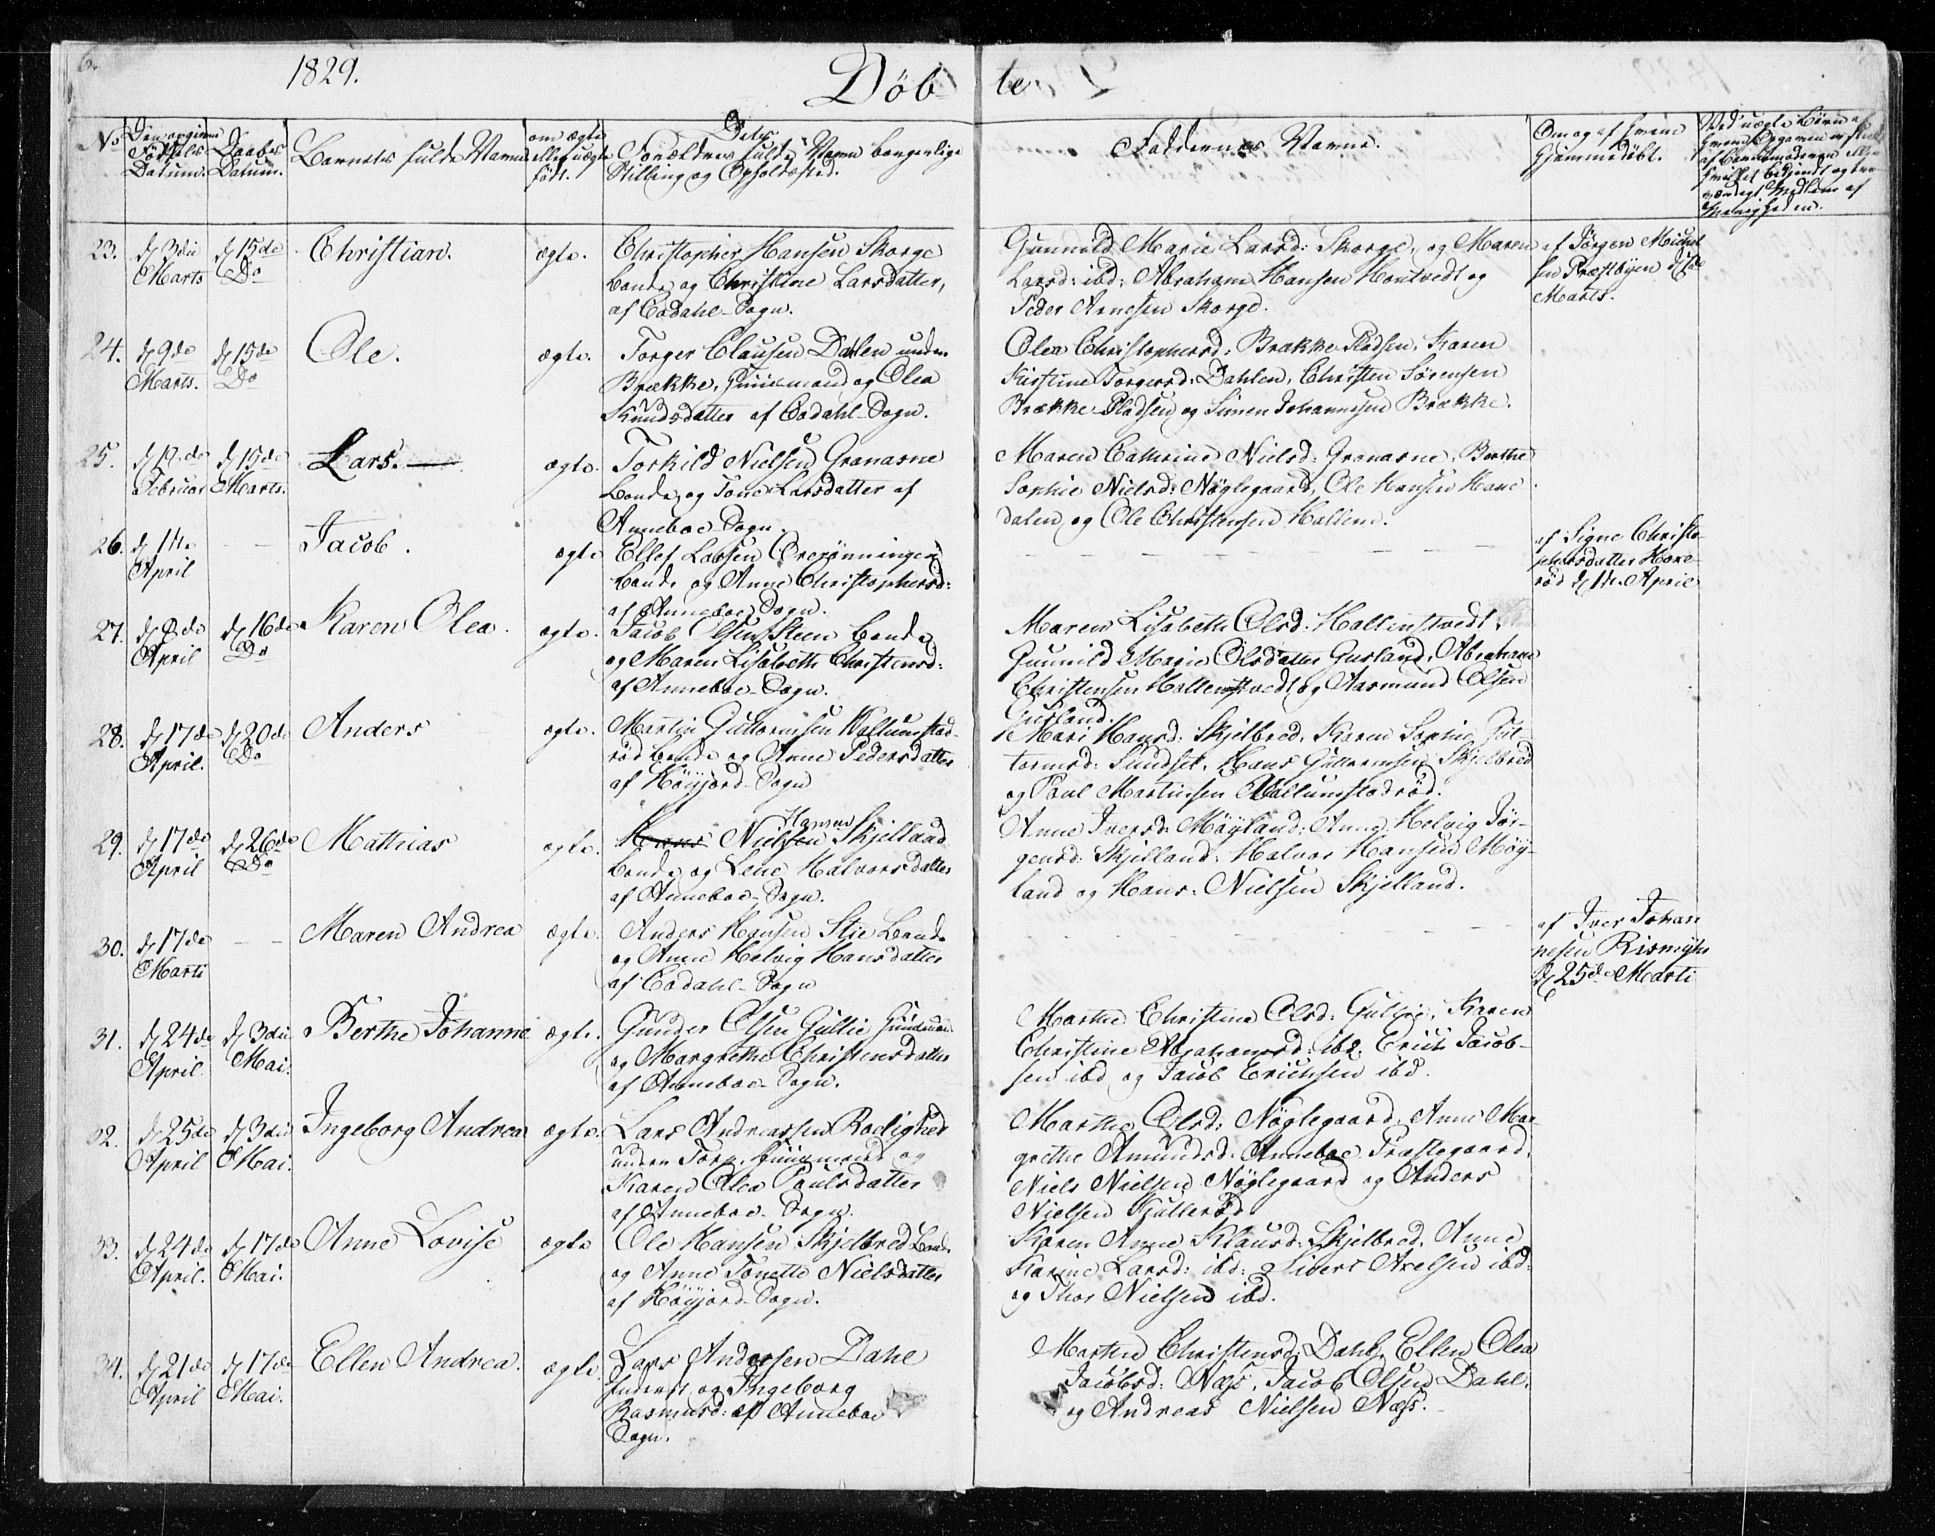 6.
1829.
Døb te
No Den opgivne Fødsels Datum. Daabs Datum. Barnets fulde Navn om ægte eller uægte født. Dets Forældres fulde Navn borgerlige Stilling og Opholdssted. Faddernes Navne. Om og af hvem Hjemmedøbt.
23. d 3die Marts d 15de Do Christian. ægte. Christopher Hansen Skorge
Bonde og Christine Larsdatter,
af Codahl-Sogn.
Gunnild Marie Larsd: Skorge, og Maren
Larsd: ibd: Abraham Hansen Hontvedt og
Peder Arnesen Skorge.
af Jørgen Michel
sen Præstbyen
Marts.
24. d 9de Marts. d 15de Do Ole. ægte. Torger Clausen Dalen under
Brække, Huusmand og Olea
Knudsdatter af Codahl-Sogn.
Olea Christophersd: Brække Pladsen, Karen
Kirstine Torgersd: Dahlen, Christen Sørensen
Brække-Pladsen og Simen Johannesen Brække.
25. d 12de Februar d 15de Marts. Lars. ægte. Torkild Nielsen Granarne
Bonde, og Tone Larsdatter af
Anneboe Sogn.
Maren Cathrine Nielsd: Granarne, Berthe
Sophie Nielsd: Nøglegaard, Ole Hansen Hane
dalen og Ole Christensen Hallem.
26. d 11te April Jacob. ægte Ellef Larsen Ørerønningen
Bonde og Anne Christophersd:
af Anneboe Sogn.
af Signe Christo-
phersdatter
rød d 11te April
27. April d 16de Do Karen Olea. ægte. Jacob Olsen Steen Bonde
og Maren Lisabeth Christensd:
af Anneboe-Sogn.
Maren Lisabeth Olsd: Hallenstvedt
Gunnild Marie Olsdatter Gusland, Abraham
Christensen Hallenstvedt og Aasmund Olsen
Gusland.
28. d 17de April. d 20de Do Anders ægte. Martin Guttormsen Wallumstad-
rød Bonde og Anne Pedersdatter
af Høyjord-Sogn
Mari Hansd: Skjelbred, Karen Sophie Gut-
tormsd: Sundset, Hans Guttormsen Skjelbred
og Paul Martinsen Wallumstadrød.
29. d 17de April d 26de Do Mathias ægte. Hans Hansen Nielsen Skjelland
Bonde og Lene Halvorsdatter
af Anneboe-Sogn.
Anne Iversd: Møyland, Anne Helvig Jør-
gensd: Skjelland: Halvor Hansen Møy-
land og Hans: Nielsen Skjelland.
30. d 17de Marti Maren Andrea ægte. Anders Hansen Stie Bonde
og Anne Helvig Hansdatter
af Codahl-Sogn
af Iver Johan
nesen
d 25de Marti
31. d 24de April. d 3die Mai. Berthe Johanne ægte. Gunder Olsen Gullie Huusmand
og Margrethe Christensdatter
af Anneboe-Sogn.
Marthe Christine Olsd: Gullie, Karen
Christine Abrahamsd: ibd. Erich Jacob-
sen ibd og Jacob Erichsen ibd.
32. d 25de April d 3die Mai. Ingeborg Andrea ægte. Lars Andreassen Rolighed
under Torp, Huusmand og
Karen Olea Paulsdatter
af Anneboe-Sogn.
Marthe Olsd: Nøglegaard, Anne Mar-
grethe Amundsd: Anneboe Præstegaard,
Niels Nielsen Nøglegaard og Anders
Nielsen
33. d 24de April. d 17de Mai. Anne Lovise ægte Ole Hansen Skjelbred Bonde
og Anne Tonette Nielsdatter
af Høyjord-Sogn.
Karen Anne Klausd: Skjelbred, Anne
Karine Larsd: ibd: Sivert Axelsen ibd:
og Thor Nielsen ibd.
34. d 21de April d 17de Mai. Ellen Andrea. ægte. Lars Andersen Dahl
og Ingeborg
Rasmusd: af Anneboe
Sogn.
Marthe Christensd: Dahl, Ellen Olea
Jacobsd: Næss, Jacob Olsen Dahl,
og Andreas Nielsen Næss.